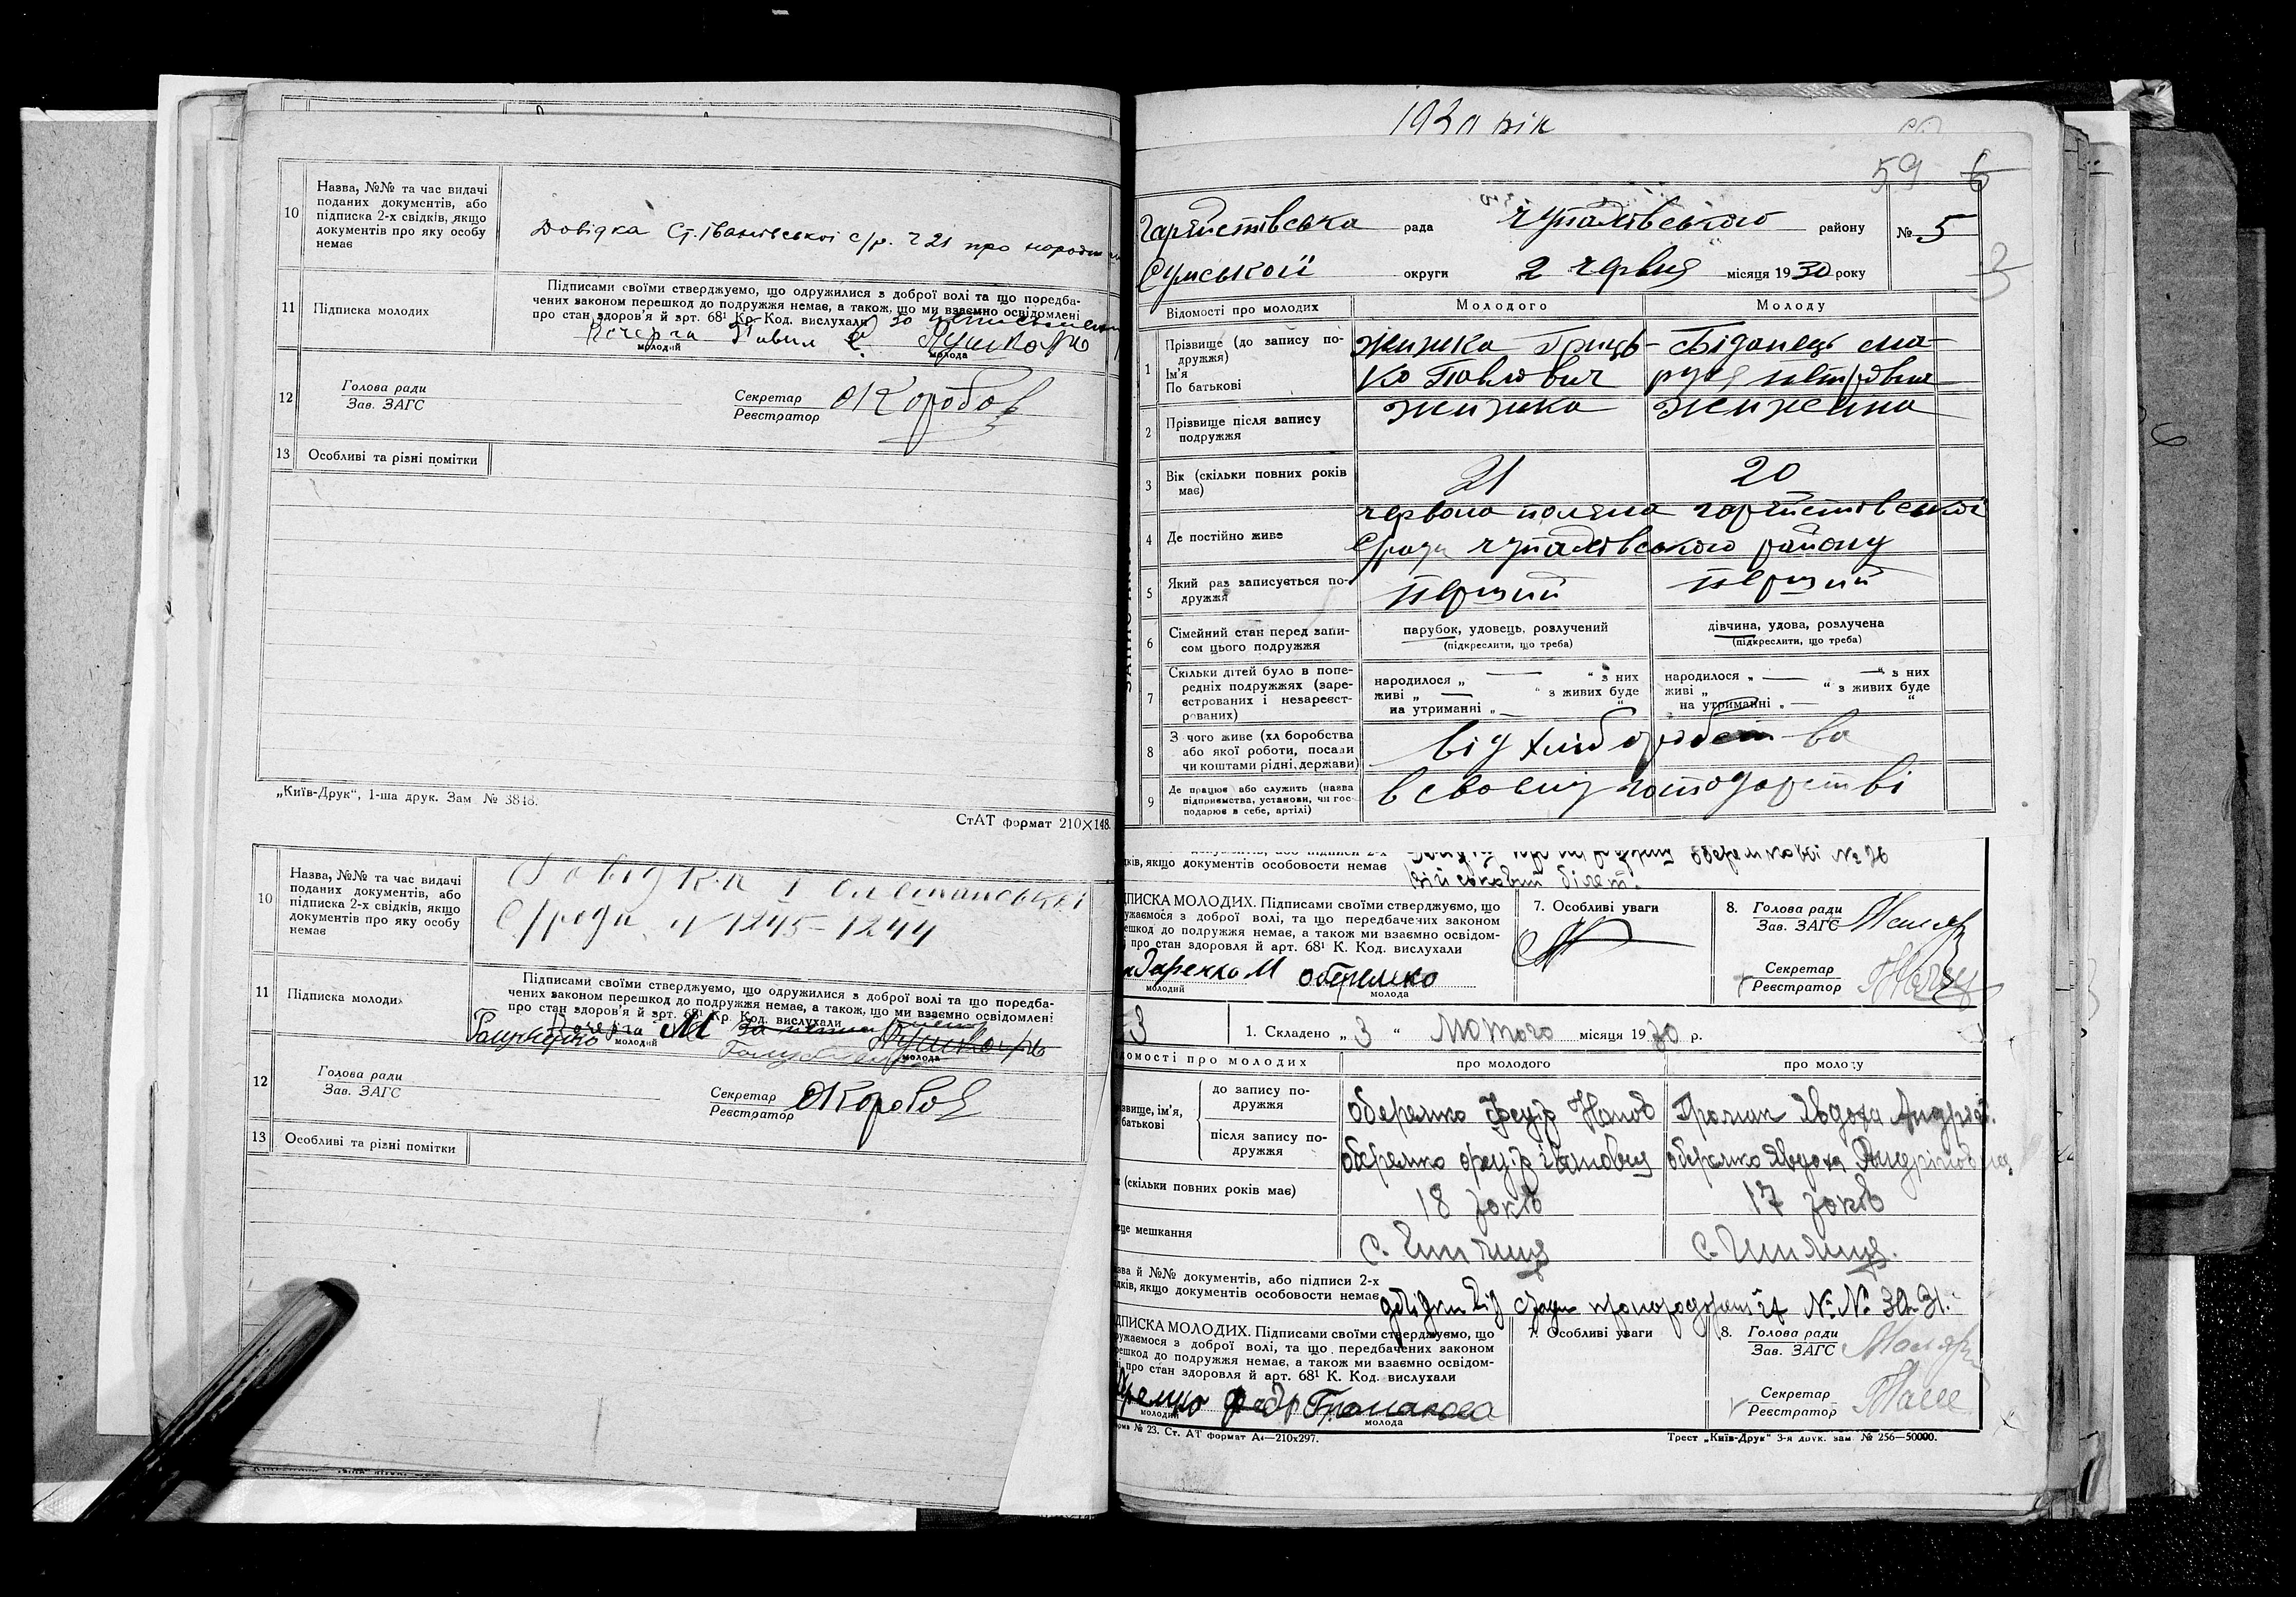 10
Назва, №№ та час видачі
поданих документів, або
підписка 2-х свідків, якщо
документів про яку особу
немає
Довідка Ст. Іванівської с/р. Ч 21 про народж
11
Підписка молодих
Підписами своїми стверджуємо, що одружилися з доброї волі та що передба-
чених законом перешкод до подружжя немає, а також, що ми взаємно освідомлені
про стан здоров'я й арт. 68¹ Кр. Код. вислухали
за
Павил
молодий
молода
12
Голова ради
Зав. ЗАГС
Секретар
Реєстратор
Коробов
13
Особливі та різні помітки
„Київ-Друк“, 1-ша друк. Зам № 3848.
СтАТ формат 210×148.
10
Назва, №№ та час видачі
поданих документів, або
підписка 2-х свідків, якщо
документів про яку особу
немає
Довідка
С/ради ч 1245-1244
11
Підписка молодих
Підписами своїми стверджуємо, що одружилися з доброї волі та що поредба-
чених законом перешкод до подружжя немає, а також, що ми взаємно освідомлені
про стан здоров'я й арт. 68¹ Кр. Код. вислухали
М
молодий
молода
12
Голова ради
Зав. ЗАГС
Секретар
Реєстратор
Коробов
13
Особливі та різні помітки
1930 рік
59 6
рада Чупахівського району
№ 5
Сумської округи „2 червня місяця 1930 року
3
Відомості про молодих
Молодого
Молоду
1
Прізвище (до запису по-
дружжя)
Ім'я
По батькові
Жижка Гриць-
ко Павлович
Біданець Ма-
руся Петрівна
2
Прізвище після запису
подружжя
Жижка
3
Вік (скільки повних років
має)
21
20
4
Де постійно живе
червона поляна
с/ради Чупахівського району
5
Який раз записується по-
дружжя
перший
перший
6
Сімейний стан перед запи-
сом цього подружжя
парубок, удовець, розлучений
(підкреслити, що треба)
дівчина, удова, розлучена
(підкреслити, що треба)
7
Скільки дітей було в попе-
редніх подружжях (заре-
єстрованих і незареєст-
рованих)
народилося „ — “ з них
живі „ — “ з живих буде
на утриманні „ — “
народилося „ — “ з них
живі „ “ з живих буде
на утриманні „ — “
8
З чого живе (хл боробства
або якої роботи, посади
чи коштами рідні, держави)
від хліборобства
9
Де працює або служить (назва
підприємства, установи, чи гос-
подарює в себе, артілі)
в своєму господарстві
дків, якщо документів особовости немає
№ 26
військовий білет.
ДПИСКА МОЛОДИХ. Підписами своїми стверджуємо, що
ружаємося з доброї волі, та що передбачених законом
ешкод до подружжя немає, а також ми взаємно освідом-
і про стан здоровля й арт. 68¹ К. Код. вислухали
М Оберемко
молодий
молода
7. Особливі уваги
8. Голова ради
Зав. ЗАГС
Секретар
Реєстратор
3
1. Складено „3“ Лютого місяця 1930 р.
домості про молодих
про молодого
про молоду
звище, ім'я,
батькові
до запису по-
дружжя
Оберемко Федір
Громак Явдоха Андрієв.
після запису по-
дружжя
Оберемко Федір Іванович
Оберемко Явдоха Андріївна
(скільки повних років має)
18 років
17 років
це мешкання
с.
с.
зва й №№ документів, або підписи 2-х
дків, якщо документів особовости немає
довідки від сради про народження № № 30-31.
ДПИСКА МОЛОДИХ. Підписами своїми стверджуємо, що
ружаємося з доброї волі, та що передбачених законом
ешкод до подружжя немає, а також ми взаємно освідом-
і про стан здоровля й арт. 68¹ К. Код. вислухали
молодий
Громакова
молода
7. Особливі уваги
8. Голова ради
Зав. ЗАГС
Секретар
Реєстратор
орма № 23. Ст. АТ формат А₄—210х297.
Трест „Київ-Друк“ 3-я друк. зам. № 256—50000.